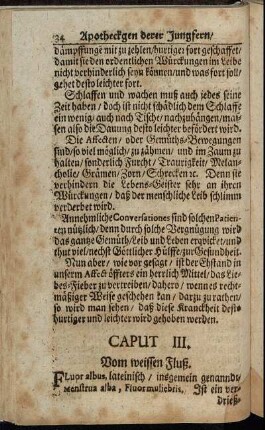 34 Apotheckgen derer Jungfern/
dämpffunge mit zu zehlen/hurtiger fort geschaffet/
damit sie den ordentlichen Würckungen im Leibe
nicht verhinderlich seyn können/und was fort soll/
gehet desto leichter fort.
Schlaffen und wachen muß auch jedes seine
Zeit haben / doch ist nicht schädlich dem Schlaffe
ein wenig/ auch nach Tische/ nachzuhängen/ maß-
sen also die Däuung desto leichter befördert wird.
Die Affecten/ oder Gemüths-Bewegungen
sind/so viel möglich/ zu zähmen/ und im Zaum zu
halten/ sonderlich Furcht/ Traurigkeit/ Melan-
cholie/ Grämen/ Zorn/ Schrecken ꝛc. Denn sie
verhindern die Lebens-Geister sehr an ihren
Würckungen/ daß der menschliche Leib schlimm
verderbet wird.
Annehmliche Conversationes sind solchen Patien-
ten nützlich/ denn durch solche Vergnügung wird
das gantze Gemüth/ Leib und Leben erqvicket/ und
thut viel/ nechst Göttlicher Hülffe zur Gesundheit.
Nun aber/ wie vor gesagt/ ist der Ehstand in
unserm Affect öffters ein herrlich Mittel/ das Lie-
bes-Fieber zu vertreiben/ dahero/ wenn es recht-
mäßiger Weise geschehen kan/ darzu zu rathen/
so wird man sehen/ daß diese Kranckheit desto
hurtiger und leichter wird gehoben werden.
CAPUT III.
Vom weissen Fluß.
Fluor albus, lateinisch/ insgemein genanndt/
Menstrua alba, Fluor muliebris. Ist ein ver-
drieß-